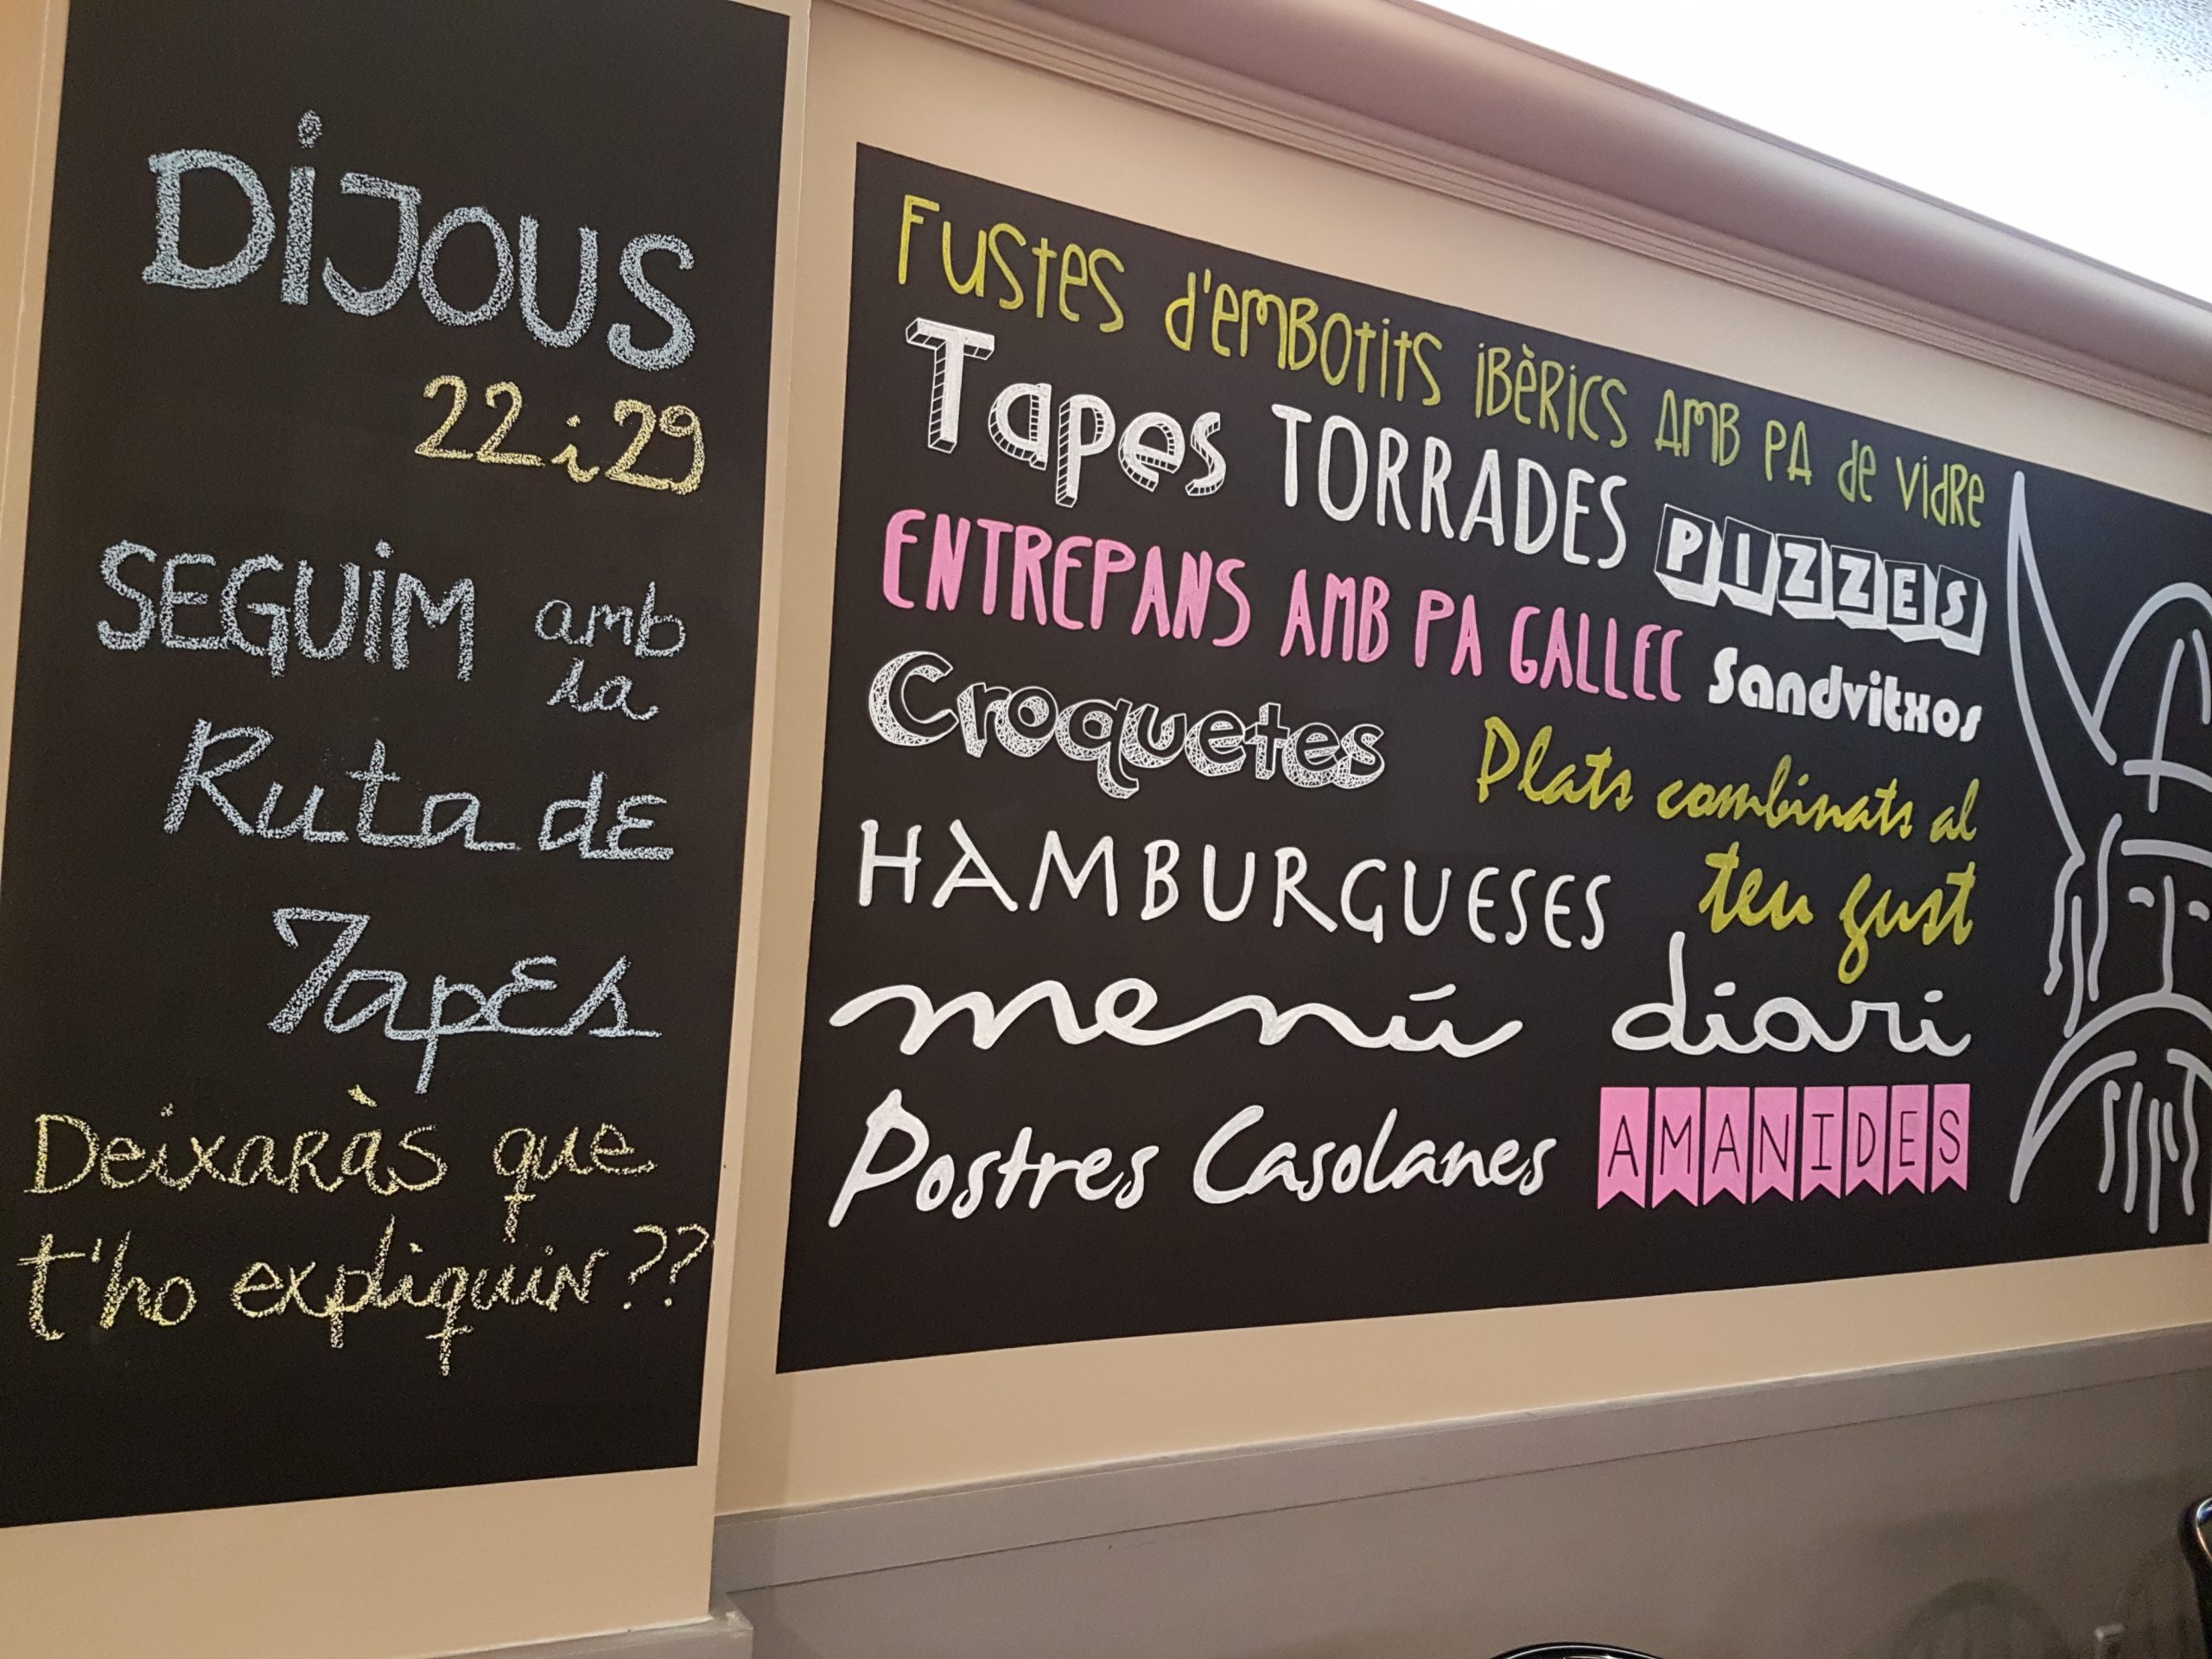 DiJOUS
22 i 29
SEGUiM amb
la
Ruta dE
TapEs
DeixaRàs que
t'ho expliquin??
Fustes d'emBotits iBèRics AmB PA de vidRe
Tapes TORRADES PIZZES
ENTREPANS AMB PA GALLEC Sandvitxos
Croquetes Plats combinats al
teu gust
HAMBURGUESES
menú diari
Postres Casolanes AMANIDES